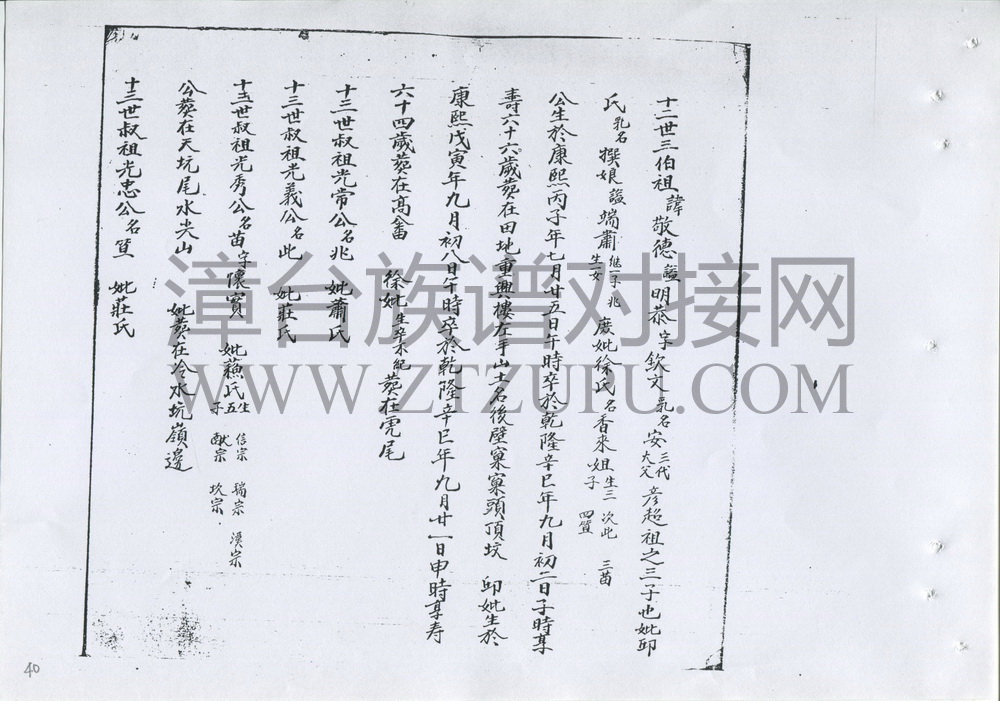 十二世三伯祖諱敬德謚明恭字欽文乳名安三代大父彦超祖之三子也妣邱
氏乳名撰娘謚端肅继一子兆生女庶妣徐氏名香來姐生三子次此三苗四笪
公生於康熙丙子年七月廿五日午時卒於乾隆辛巳年九月初二日子時享
壽六十六歲葬在田地重興樓左手山土名後壁窠窠頭頂坟 邱妣生於
康熙戊寅年九月初八日午時卒於乾隆辛巳年九月廿一日申時享寿
六十四歲葬在高畬 徐妣生卒未紀葬在虎尾
十三世叔祖光常公名兆 妣蕭氏
十三世叔祖光義公名此 妣莊氏
十三世叔祖光秀公名苗字懷賓 妣蘓氏生五子 信宗 瑞宗 漢宗 猷宗 坎宗
公葬在天坑尾水尖山 妣葬在冷水坑嶺邊
十三世叔祖光忠公名笪 妣莊氏
40
漳台族谱对接网
WWW.ZTZUPU.COM